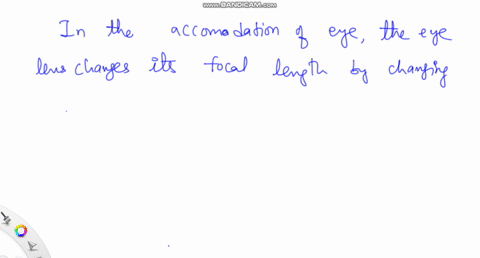 www.BANDICAM.com
In the accomodation of eye, the eye
lens changes its focal length by changing